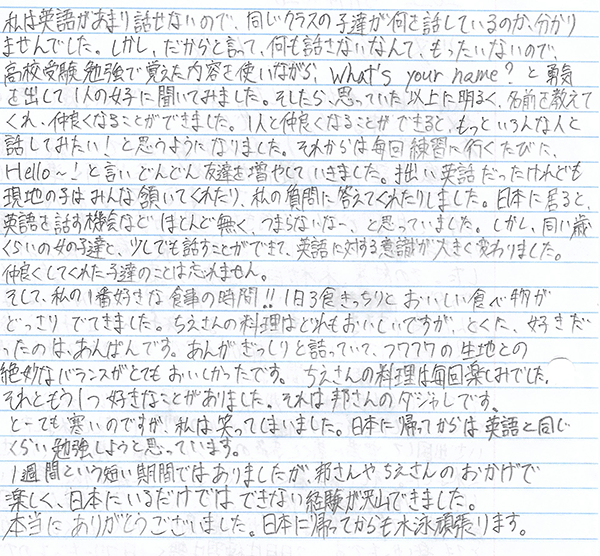 私は英語があまり話せないので、同じクラスの子達が何を話しているのか、分かり
ませんでした。しかし、だからと言って、何も話さないなんて、もったいないので、
高校受験勉強で覚えた内容を使いながら、What's your name? と勇気
を出して1人の女子に聞いてみました。そしたら、思っていた以上に明るく、名前を教えて
くれ、仲良くなることができました。1人と仲良くなることができると、もっといろんな人と
話してみたい!と思うようになりました。それからは毎回練習に行くたびに、
Hello〜!と言いどんどん友達を増やしていきました。拙い英語だったけれども
現地の子はみんな頷いてくれたり、私の質問に答えてくれたりしました。日本に居ると、
英語を話す機会などほとんど無く、つまらないな〜、と思っていました。しかし、同い歳
くらいの女の子達と、少しでも話すことができて、英語に対する意識が大きく変わりました。
仲良くしてくれた子達のことは忘れません。
そして、私の1番好きな食事の時間!! 1日3食きっちりとおいしい食べ物が
どっさりでてきました。ちえさんの料理はどれもおいしいですが、とくに、好きだ
ったのは、あんぱんです。あんがぎっしりと詰っていて、フワフワの生地との
絶妙なバランスがとてもおいしかったです。ちえさんの料理は毎回楽しみでした。
それともう1つ好きなことがありました。それは邦さんのダジャレです。
とーても寒いのですが、私は笑ってしまいました。日本に帰ってからは英語と同じ
くらい勉強しようと思っています。
1週間という短い期間ではありましたが、邦さんやちえさんのおかげで
楽しく、日本にいるだけではできない経験が沢山できました。
本当にありがとうございました。日本に帰ってからも水泳頑張ります。